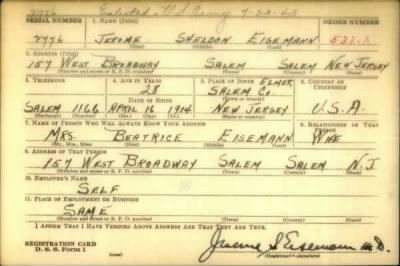 Enlisted U.S. Army
SERIAL NUMBER 1. NAME (Print) ORDER NUMBER
2776 JEROME SHELDON EISEMANN
(First) (Middle) (Last)
2. ADDRESS (Print)
157 WEST BROADWAY SALEM SALEM NEW JERSEY
(Number and street or R. F. D. number) (Town) (County) (State)
3. TELEPHONE 4. AGE IN YEARS 5. PLACE OF BIRTH 6. COUNTRY OF CITIZENSHIP
28 ELMER, SALEM CO.
DATE OF BIRTH
SALEM 1166 APRIL 16 1914 NEW JERSEY U.S.A.
7. NAME OF PERSON WHO WILL ALWAYS KNOW YOUR ADDRESS 8. RELATIONSHIP OF THAT PERSON
MRS. BEATRICE EISEMANN WIFE
(Mr., Mrs., Miss) (First) (Middle) (Last)
9. ADDRESS OF THAT PERSON
157 WEST BROADWAY SALEM SALEM N.J.
(Number and street or R. F. D. number) (Town) (County) (State)
10. EMPLOYER'S NAME
SELF
11. PLACE OF EMPLOYMENT OR BUSINESS
SAME
(Number and street or R. F. D. number) (Town) (County) (State)
I AFFIRM THAT I HAVE VERIFIED ABOVE ANSWERS AND THAT THEY ARE TRUE.
REGISTRATION CARD
D. S. S. Form 1
Jerome S. Eisemann M.D.
(Registrant's signature)